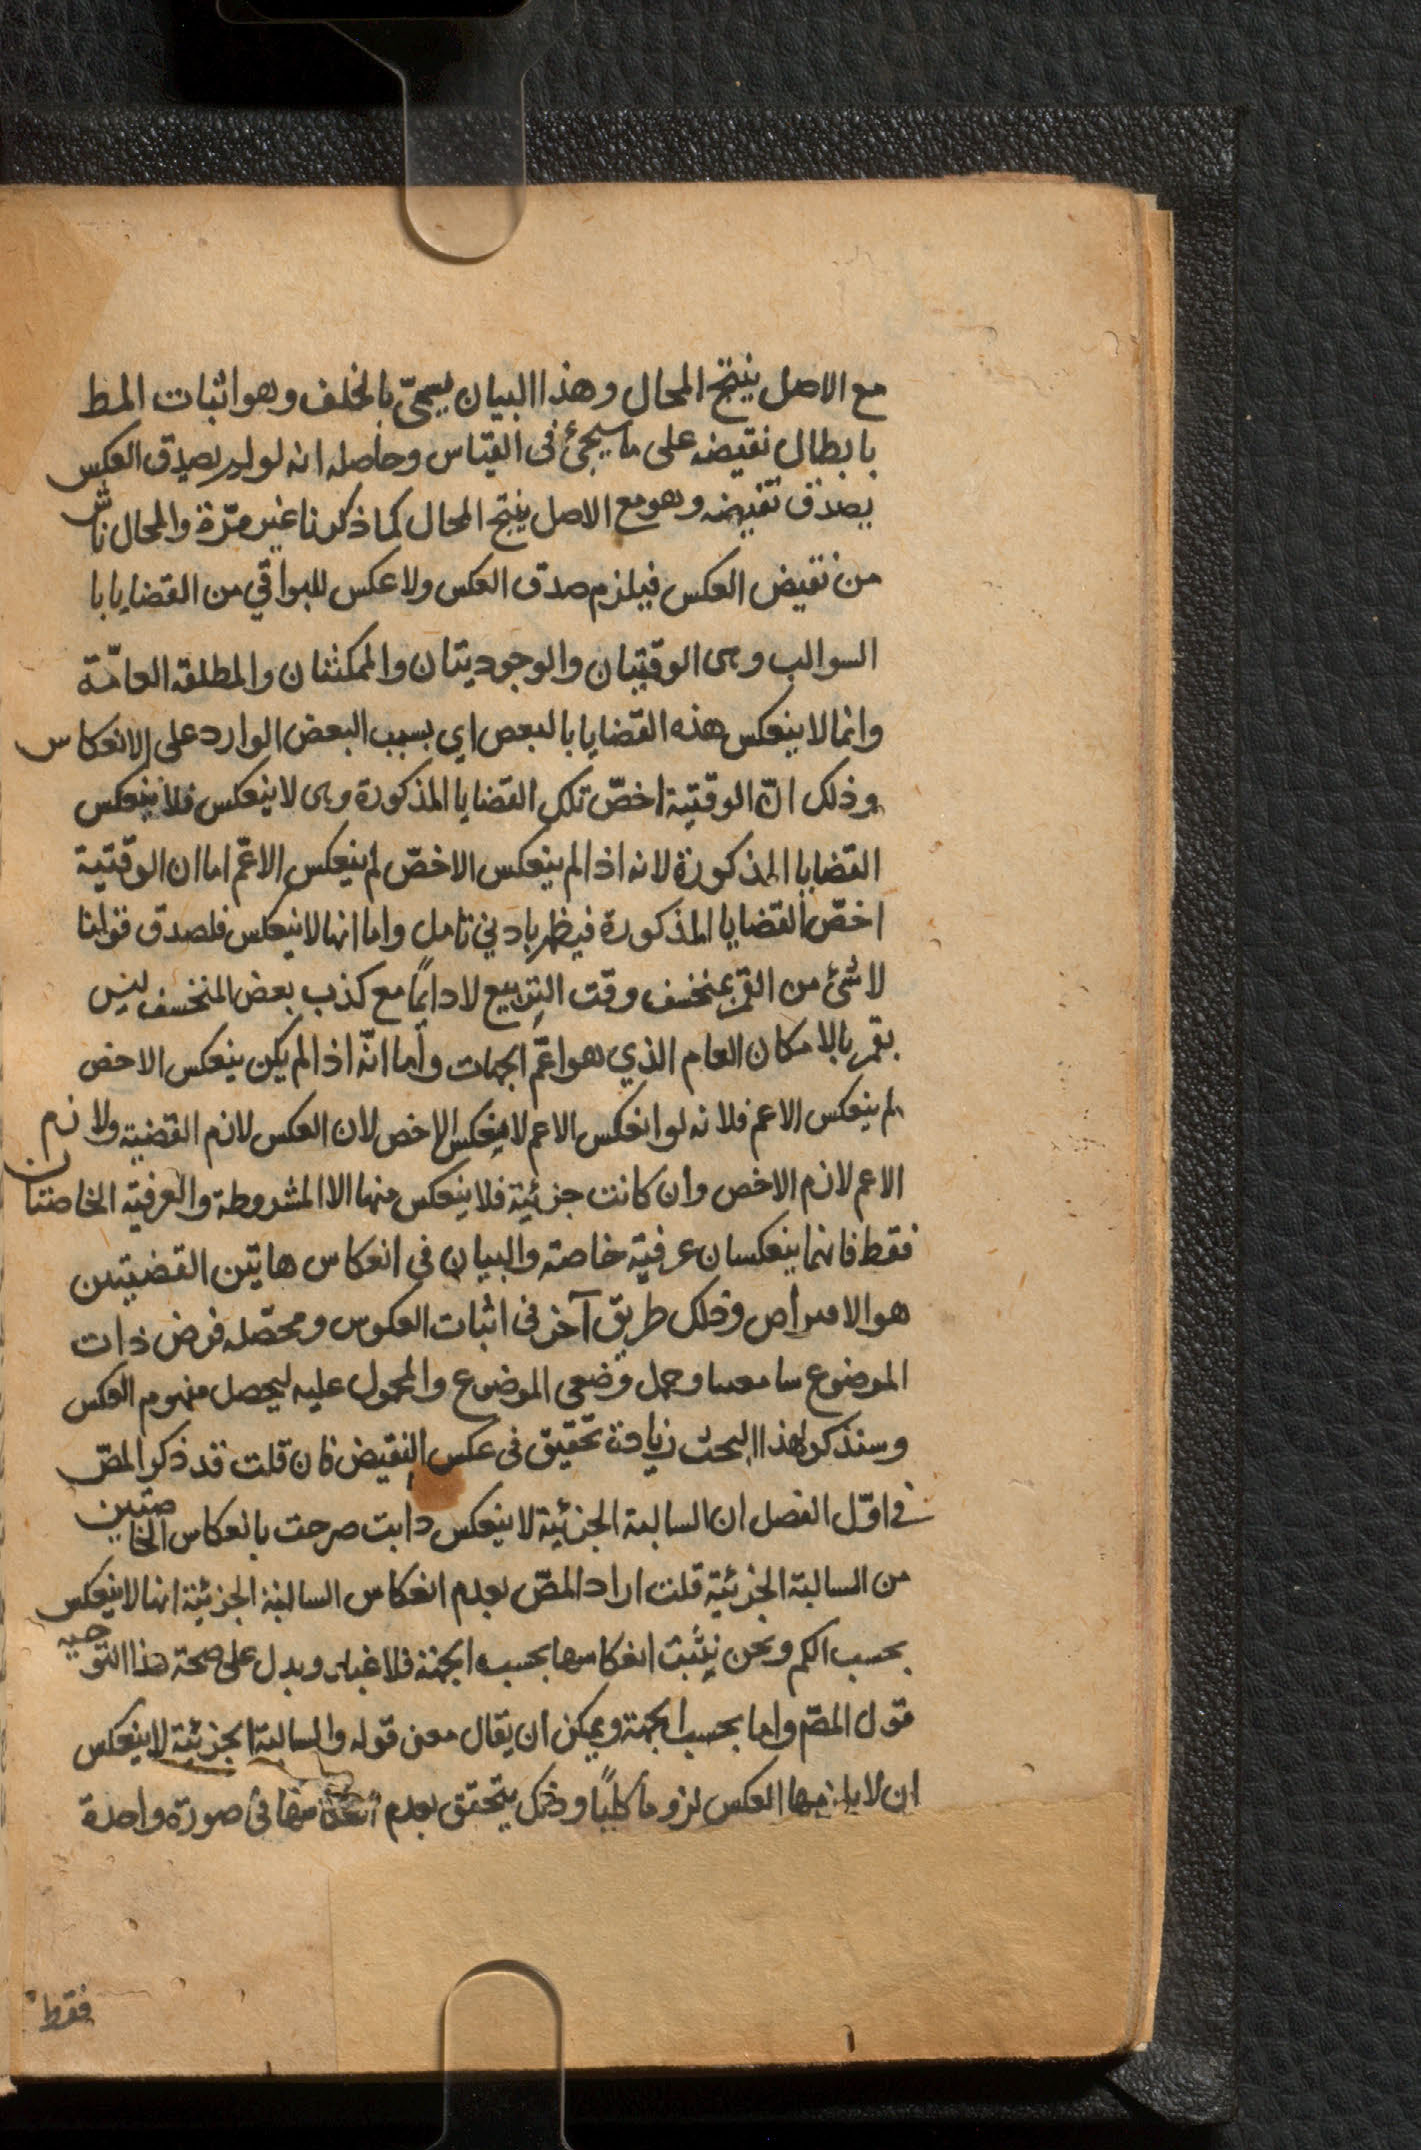 مع الاصل ينتج المحال وهذا البيان يسمىّ بالخلف وهو اثبات المط
بابطال نقيضه على ما سيجئ فى القياس وحاصله انه لو لم يصدق العكس
يصدق نقيضه وهو مع الاصل ينتج المحال كما ذكرنا غير مرّة والمحال ناش
من نقيض العكس فيلزم صدق العكس ولا عكس للبواقي من القضايا با
السوالب وهى الوقتيتان والوجوديتان والممكنتان والمطلقة العامّة
وانما لا ينعكس هذه القضايا بالبعض اي بسبب البعض الوارد على الانعكاس
وذلك انّ الوقتية اخصّ تلك القضايا المذكورة وهى لا ينعكس فلا ينعكس
القضايا المذكورة لانه اذا لم ينعكس الاخصّ لم ينعكس الاعمّ اما ان الوقتية
اخصّ القضايا المذكورة فيظهر بادني تامل واما انها لا ينعكس فلصدق قولنا
لا شئ من القمر بمنخسف وقت التربيع لا دايمًا مع كذب بعض المنخسف ليس
بقمر بالامكان العام الذي هو اعمّ الجهات وأما انّه اذا لم يكن ينعكس الاخص
لم ينعكس الاعم فلانه لو انعكس الاعم لا ينعكس الاخص لان العكس لازم القضية ولازم
الاعم لازم الاخص وان كانت جزئية فلا ينعكس منها الا المشروطة والعرفية الخاصتان
فقط فانهما ينعكسان عرفية خاصة والبيان فى انعكاس هاتين القضيتين
هو الافتراض وذلك طريق آخر فى اثبات العكوس ومحصّله فرض ذات
الموضوع شيا معينا وحمل وضعى الموضوع والمحمول عليه ليحصل مفهوم العكس
وسنذكر لهذا البحث زيادة تحقيق فى عكس النقيض فان قلت قد ذكر المصّ
في اوّل الفصل ان السالبة الجزئية لا ينعكس وانت صرحت بانعكاس الخاصتين
من السالبة الجزئية قلت اراد المصّ بعدم انعكاس السالبة الجزئية انها لا ينعكس
بحسب الكم ونحن نثبت انعكاسها بحسب الجهة فلا غبار ويدل على صحة هذا التوجيه
قول المصّ واما بحسب الجهة ويمكن ان يقال معنى قوله والسالبة الجزئية لا ينعكس
ان لا يلزمها العكس لزوما كليًا وذلك يتحقق بعدم انعكاسها فى صورة واحدة
فقط